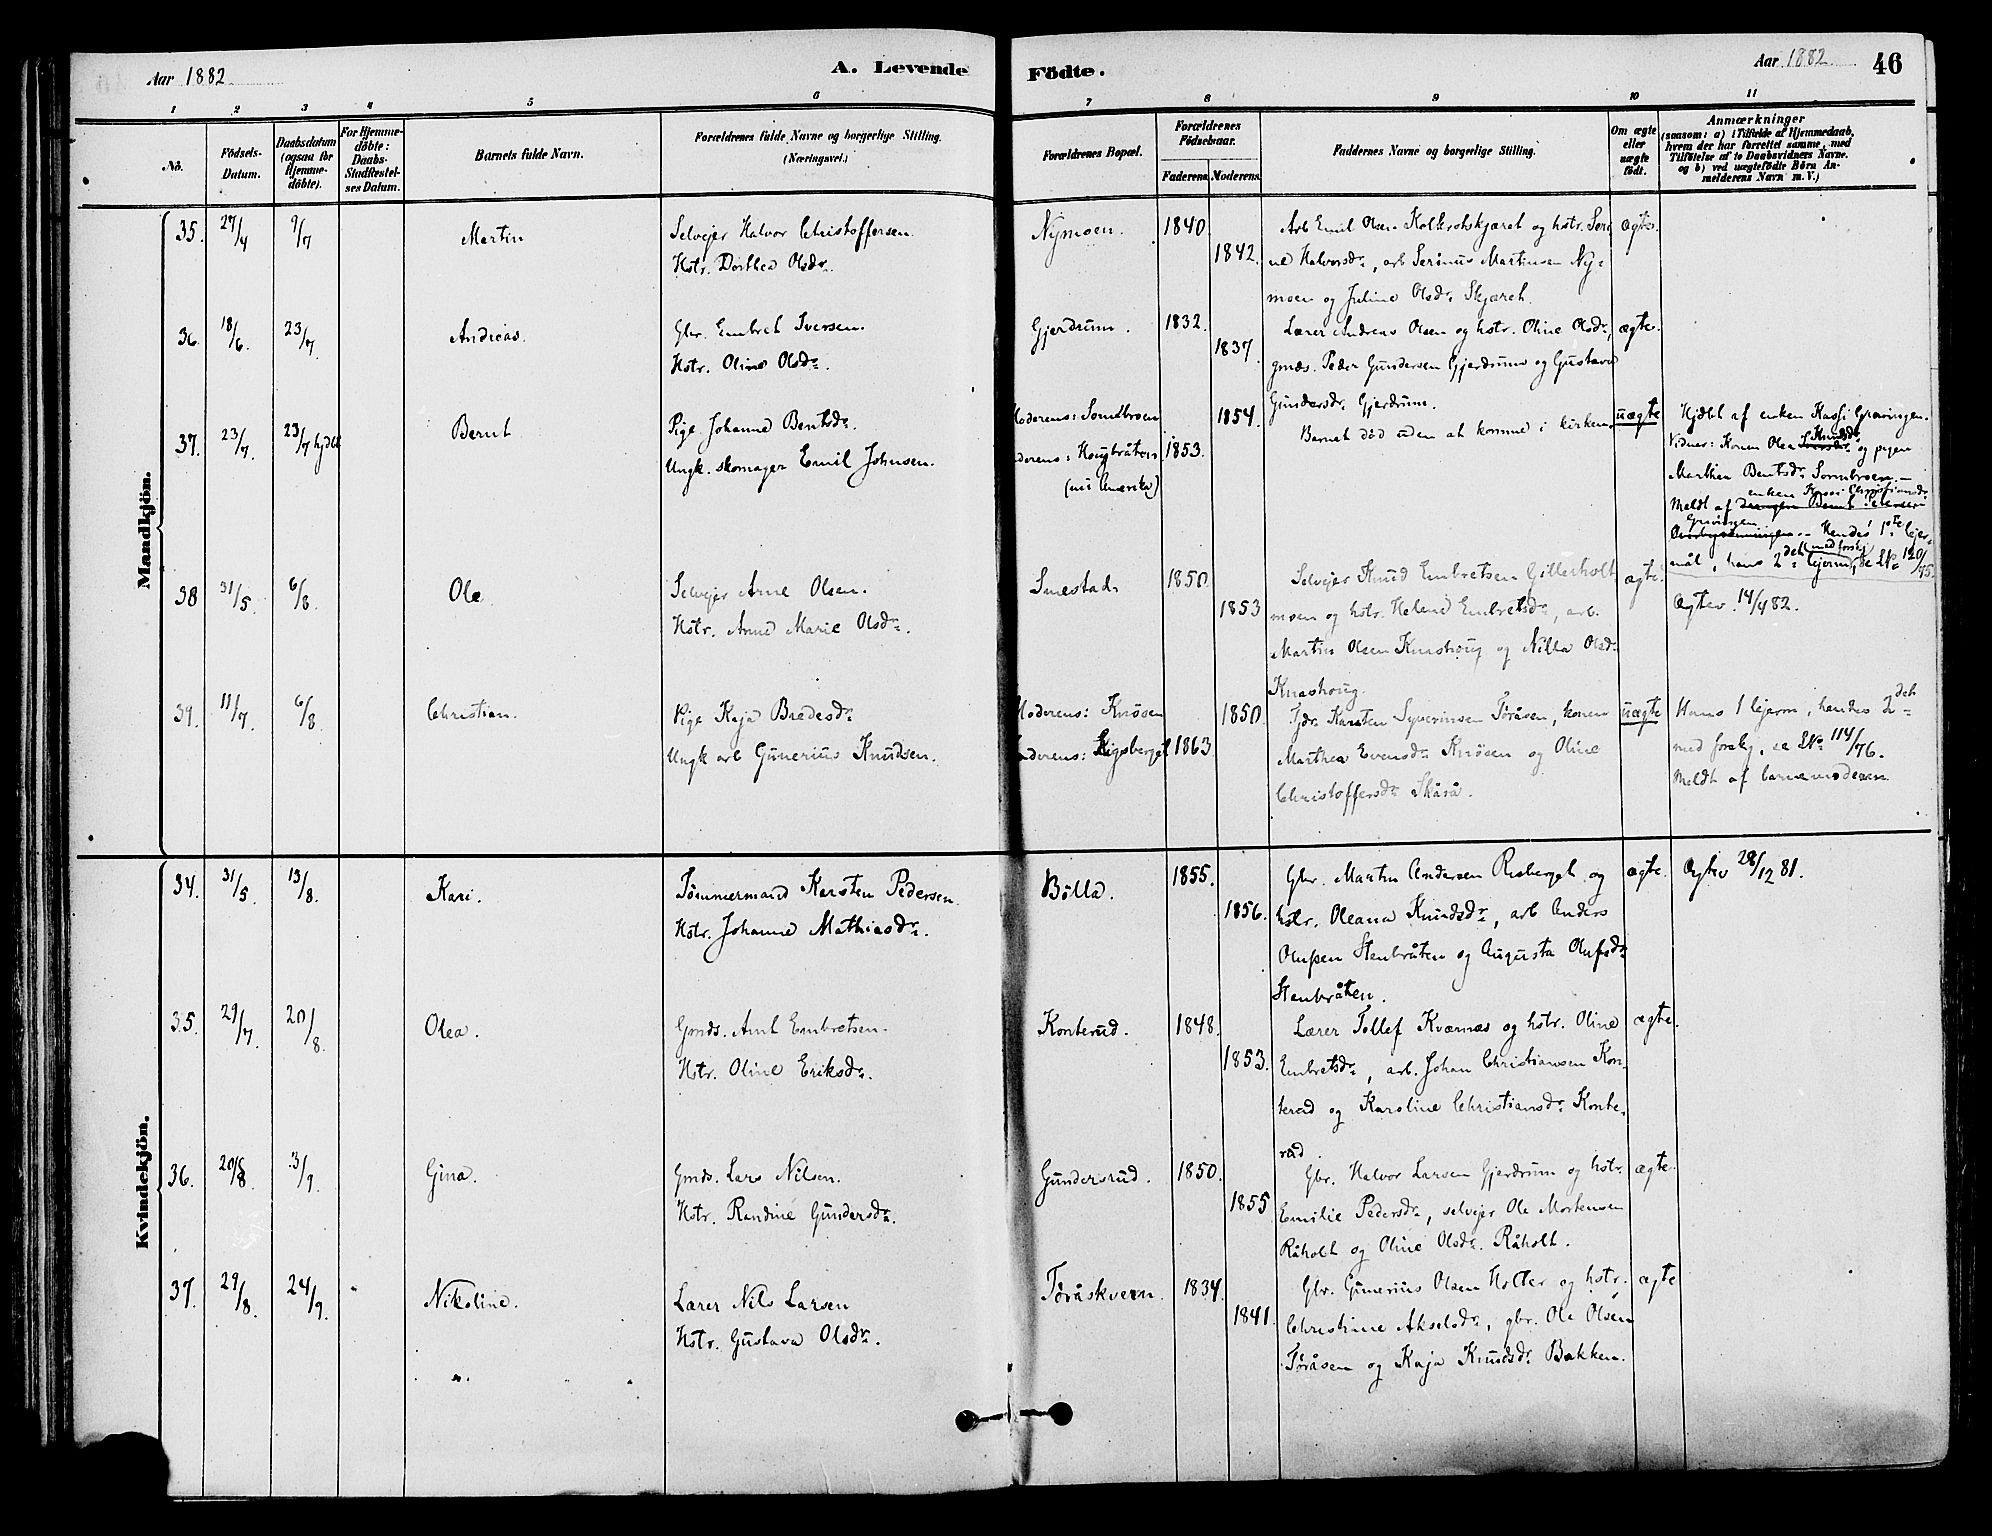 Aar 1882
A. Levende Födte.
Aar 1882
46
1 2 3 4 5 6 7 8 9 10 11
No.
Födsels-Datum.
Daabsdatum (ogsaa for Hjemme-döbte).
For Hjemme-döbte: Daabs-Stadfæstel-ses Datum.
Barnets fulde Navn.
Forældrenes fulde Navne og borgerlige Stilling. (Næringsvei.)
Forældrenes Bopæl.
Forældrenes Födselsaar.
Faderens Moderens
Faddernes Navne og borgerlige Stilling.
Om ægte eller uægte födt.
Anmærkninger
(saasom: a) i Tilfælde af Hjemmedaab,
hvem der har forrettet samme, med
Tilföielse af to Daabsvidners Navne.
og b) ved uægtefödte Börn An-
melderens Navn m. V.)
Mandkjön.
35. 27/4 9/7 Martin
Selvejer Halvor Christoffersen.
Hstr. Dorthea Olsdr.
Nymoen. 1840. 1842.
Arb Emil Olsen Kolkrotskjæret og hstr. Seri
ne Halvorsdr., arb Serinus Martinsen Ny-
moen og Juline Olsdr. Skjæret.
ægte.
36. 18/6. 23/7 Andreas.
Gbr. Embret Iversen.
Hstr. Oline Olsdr.
Gjerdrum. 1832. 1837.
Lærer Andreas Olsen og hstr. Oline Olsdr.,
gmds. Peder Gundersen Gjerdrum og Gustava
Gundersdr. Gjerdrum.
ægte.
37. 23/7. 23/7 hjdbt Bernt
Pige Johanne Bentsdr.
Ungk. skomager Emil Johnsen.
Moderens: Sormbroen
Faderens: Haugbråten
(nu i Amerika)
1854. 1853.
Barnet död uden at komme i kirken.
uægte
Hjdbt af enken Kassi Gravingen.
Vidner: Konen Olea Knudsdr. og pigen
Marthea Bentsdr. Sormbroen.-
enken Kassi Christiansdr.
Meldt af
Gravingen. Hendes 1ste lejer-
mål, hans 2det med forskj. lejerm., se LNo 120/75.
38 31/5. 6/8. Ole.
Selvejer Arne Olsen.
Hstr. Anne Marie Olsdr.
Smestad. 1850. 1853
Selvejer Knud Embretsen Gillerholt
moen og hstr. Helene Embretsdr., arb.
Martin Olsen Knashoug og Nilla Olsdr.
Knashoug.
ægte.
Ægtev. 14/4 82.
39. 11/7. 6/8 Christian.
Pige Kaja Bredesdr.
Ungk arb Gunerius Knudsen.
Moderens: Knösen
Faderens: Ligsberget
1850. 1863
Gdr. Karsten Syverinsen Töråsen, konen
Marthea Evensdr. Knösen og Oline
Christoffersdr. Skåra.
uægte
Hans 1 lejerm, hendes 2det
med forskj, se LNo 114/76.
Meldt af barnemoderen
Kvindekjön.
34. 31/5 13/8. Kari.
Tömmermand Karsten Pedersen.
Hstr. Johanne Mathiasdr.
Bölla. 1855. 1856.
Gbr. Martin Andersen Risberget og
hstr. Oleana Knudsdr., arb Anders
Olufsen Stenbråten og Augusta Olufsdr.
Stenbråten.
ægte.
Ægtev 28/12 81.
35. 29/7. 20/8. Olea.
Gmds. Amt Embretsen.
Hstr. Oline Eriksdr.
Konterud. 1848. 1853.
Lærer Tollef Kværnæs og hstr. Oline
Embretsdr., arb. Johan Christiansen Kon-
terud og Karoline Christiansdr. Konte-
rud.
ægte.
36. 20/8 3/9. Gina.
Gmds. Lars Nilsen.
Hstr. Randine Gundersdr.
Gundersrud. 1850. 1855
Gbr. Halvor Larsen Gjerdrum og hstr.
Emilie Pedersdr., selvejer Ole Mortensen
Råholt og Oline Olsdr. Råholt.
ægte.
37. 29/8. 24/9. Nikoline.
Lærer Nils Larsen
Hstr. Gustava Olsdr.
Töråskvern. 1834. 1841.
Gbr. Gunerius Olsen Holter og hstr.
Christine Akselsdr., gbr. Ole Olsen
Töråsen og Kaja Knudsdr. Bakken.
ægte